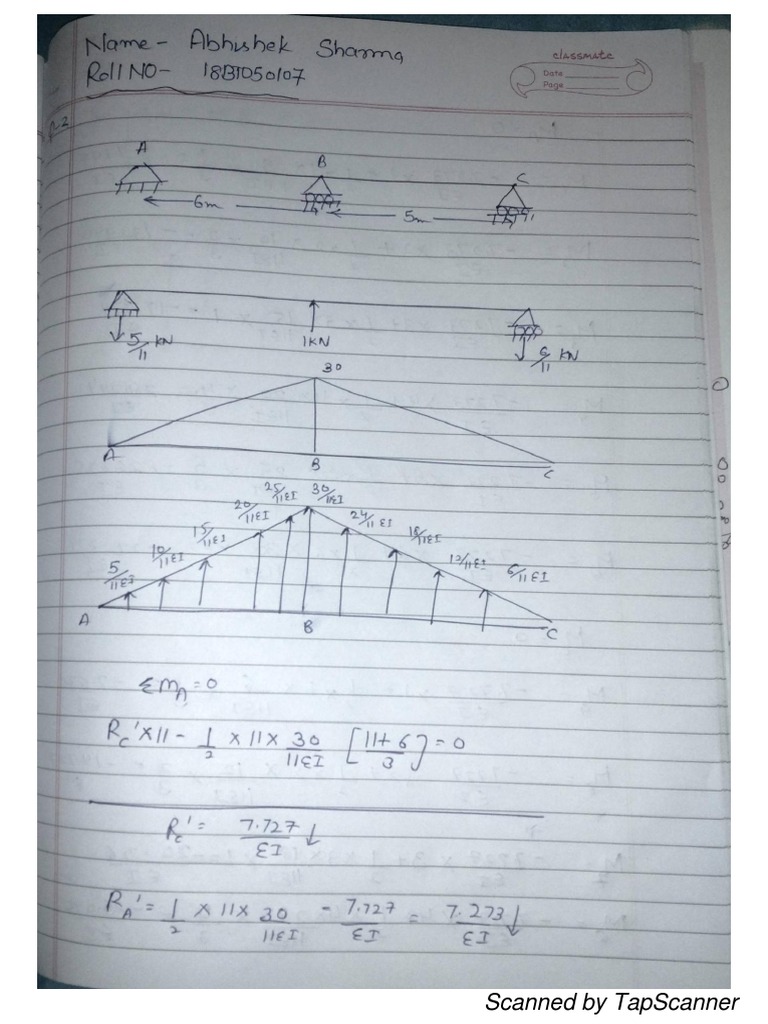 Name- Abhishek Sharma
Roll NO- 18BTD50107
classmate
Date
Page
A
B
C
6m
5m
5/11 KN
1KN
6/11 KN
30
A
B
C
5/11EI
10/11EI
15/11EI
20/11EI
25/11EI
30/11EI
24/11EI
18/11EI
12/11EI
6/11EI
A
B
C
ΣM_A=0
R_C'×11 - 1/2 × 11 × 30/11EI [11+6/3] = 0
R_C' = 7.727/EI ↓
R_A' = 1/2 × 11 × 30/11EI - 7.727/EI = 7.273/EI ↓
Scanned by TapScanner